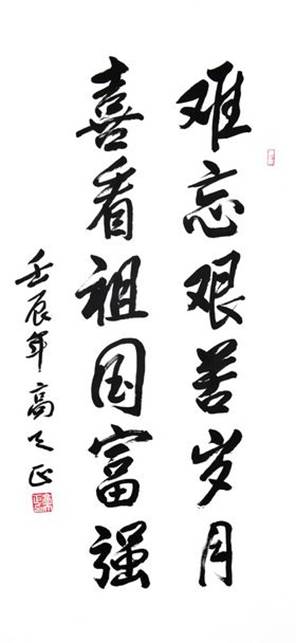 难忘艰苦岁月
喜看祖国富强
壬辰年高天正